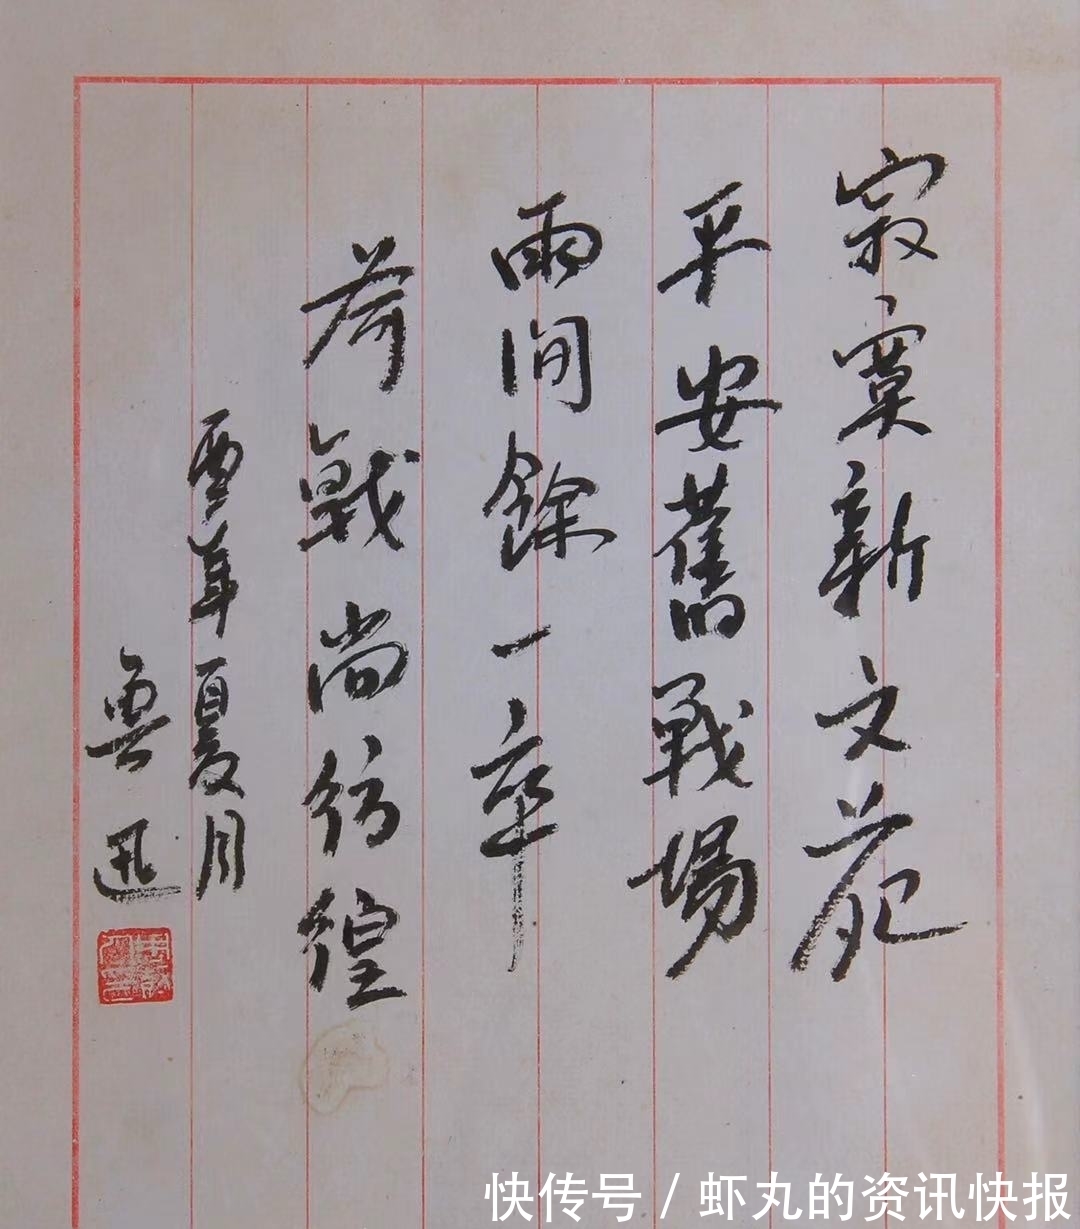 寂寞新文苑
平安舊戰場
兩間餘一卒
荷戟尚彷徨
酉年夏月
魯迅
快传号 / 虾丸的资讯快报